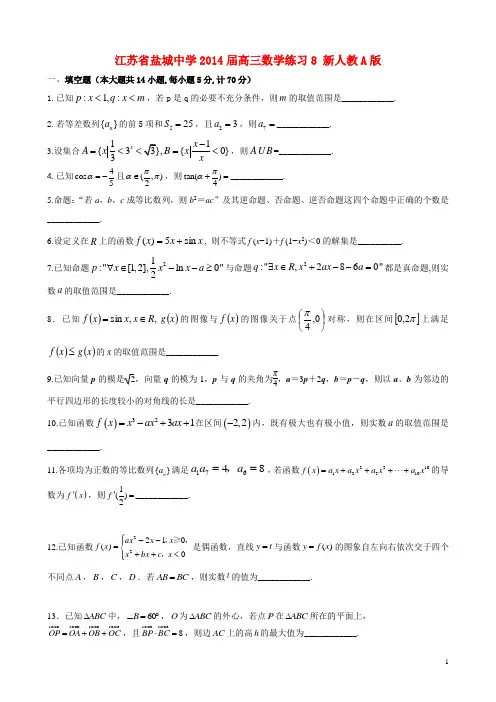 江苏省盐城中学2014届高三数学练习8 新人教A版
一、填空题（本大题共14小题,每小题5分,计70分）
1. 已知 p : x < 1, q : x < m ，若 p 是 q 的必要不充分条件，则 m 的取值范围是____________.
2. 若等差数列{aₙ} 的前 5 项和 S₅ = 25 ，且 a₂ = 3 ，则 a₇ = ____________.
3.设集合 A = {x | 1/3 < 3ˣ < √3}, B = {x | (x−1)/x < 0} ，则 A U B =____________.
4. 已知 cos α = −4/5 且 α ∈ (π/2, π) ，则 tan(α + π/4) = ____________.
5.命题：“若 a，b，c 成等比数列，则 b² ＝ac”及其逆命题、否命题、逆否命题这四个命题中正确的个数是
____________.
6.设定义在 R 上的函数 f(x) = 5x + sin x , 则不等式 f (x−1)＋f (1−x²)＜0 的解集是__________.
7.已知命题 p : "∀x ∈ [1,2], 1/2 x² − ln x − a ≥ 0" 与命题 q : "∃x ∈ R, x² + 2ax − 8 − 6a = 0" 都是真命题,则实
数 a 的取值范围是____________.
8．已知 f(x) = sin x, x ∈ R, g(x) 的图像与 f(x) 的图像关于点 (π/4, 0) 对称，则在区间 [0,2π] 上满足
f(x) ≤ g(x) 的 x 的取值范围是____________
9.已知向量 p 的模是√2，向量 q 的模为 1，p 与 q 的夹角为π/4，a＝3p＋2q，b＝p－q，则以 a、b 为邻边的
平行四边形的长度较小的对角线的长是____________.
10.已知函数 f(x) = x³ − ax² + 3ax + 1 在区间 (−2, 2) 内，既有极大也有极小值，则实数 a 的取值范围是
____________.
11.各项均为正数的等比数列{aₙ} 满足 a₁a₇ = 4，a₆ = 8 ,若函数 f(x) = a₁x + a₂x² + a₃x³ + ⋯ + a₁₀x¹⁰ 的导
数为 f′(x) ，则 f′(1/2) = ____________.
12.已知函数 f(x) = { ax² − 2x − 1, x ≥ 0, x² + bx + c, x < 0 是偶函数，直线 y = t 与函数 y = f(x) 的图象自左向右依次交于四个
不同点 A，B，C，D．若 AB = BC，则实数 t 的值为____________.
13．已知 ΔABC 中，∠B = 60°，O 为 ΔABC 的外心，若点 P 在 ΔABC 所在的平面上，
OP = OA + OB + OC，且 BP · BC = 8，则边 AC 上的高 h 的最大值为____________.
1